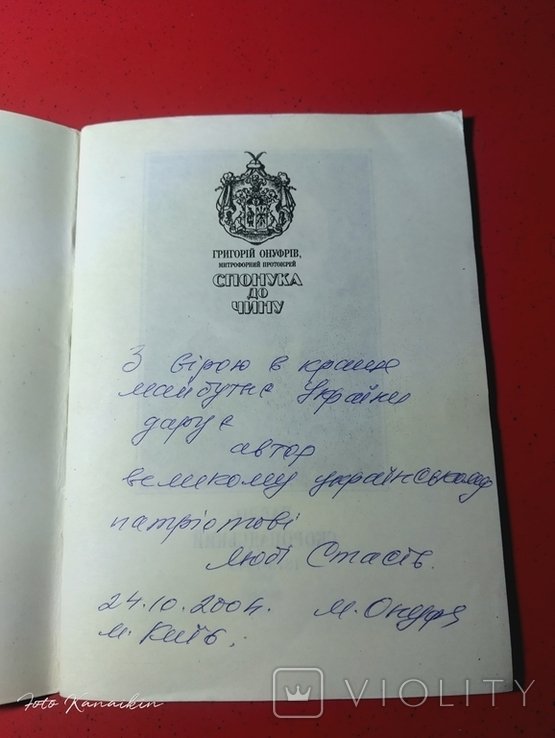 ГРИГОРІЙ ОНУФРІВ,
МИТРОФОРНИЙ ПРОТОІЄРЕЙ
СПОНУКА
ДО
ЧИНУ
З вірою в краще
майбутнє України
дарує
автор
великому українському
патріотові
Любі Стасів.
24.10.2004.
м. Київ.
VIOLITY
Foto Kanaikin